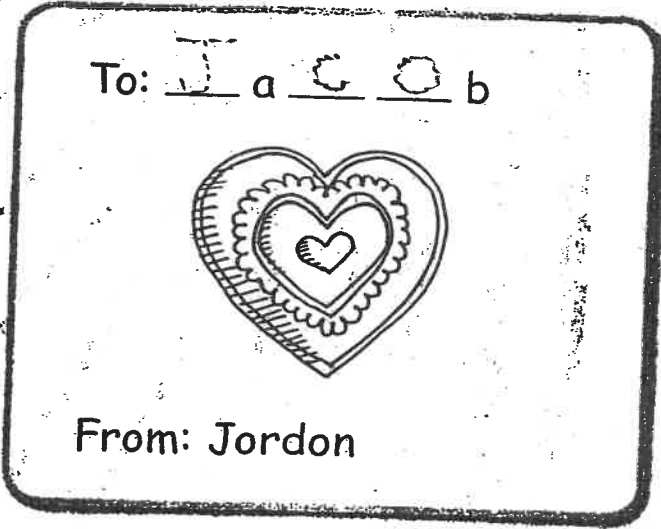 To: J a c o b
From: Jordon